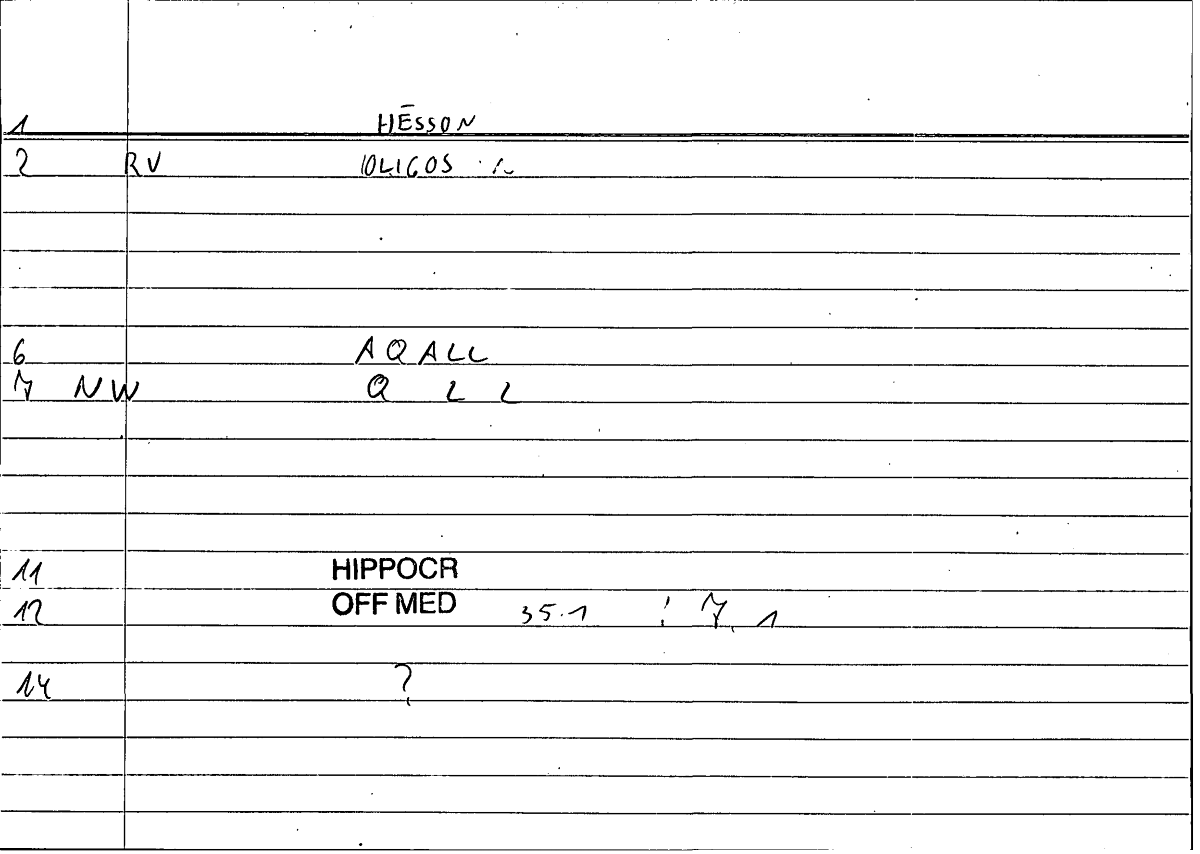 1 HĒSSON
2 RV OLIGOS
6 AQALL
7 NW Q L L
11 HIPPOCR
12 OFF MED 35.1 ! 7,1
14 ?